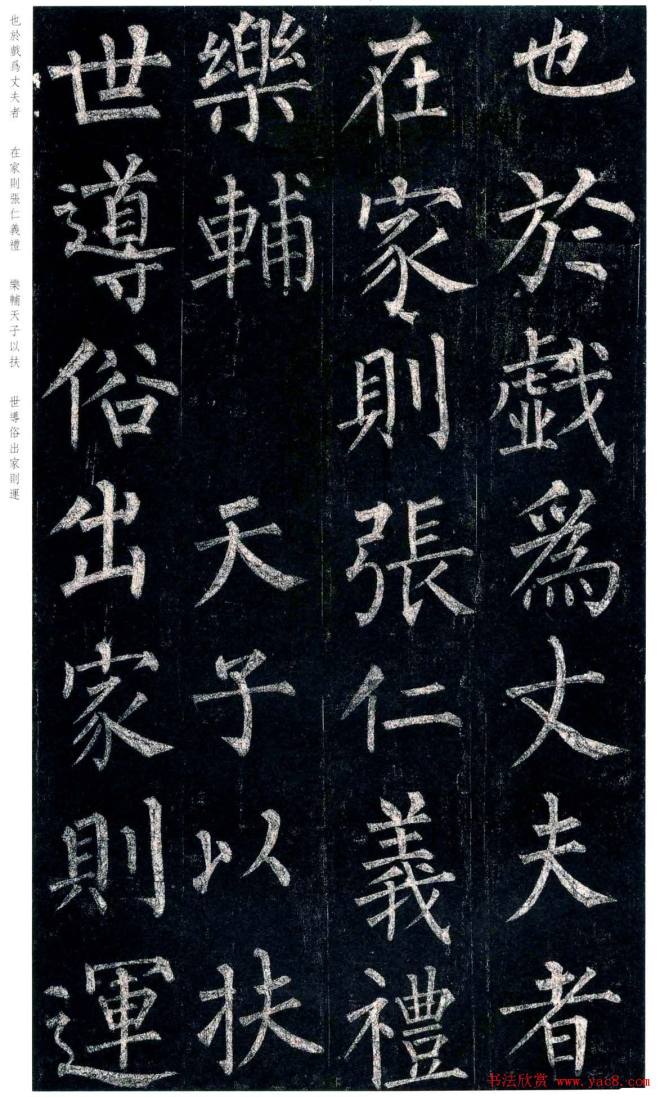 也於戲爲丈夫者
在家則張仁義禮
樂輔天子以扶
世導俗出家則運
也於戲爲丈夫者 在家則張仁義禮 樂輔天子以扶 世導俗出家則運
书法欣赏 www.yac8.com